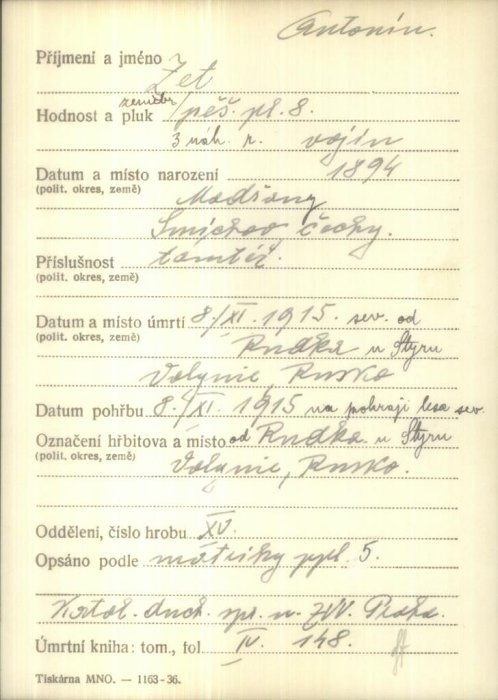 Antonín.
Příjmení a jméno Zet
zeměbr.
Hodnost a pluk pěš. pl. 8.
3 náh. r. vojín
Datum a místo narození 1894
(polit. okres, země) Modřany
Smíchov Čechy.
Příslušnost tamtéž.
(polit. okres, země)
Datum a místo úmrtí 8./XI. 1915. sev. od
(polit. okres, země) Rudka u Styru
Volynie, Rusko
Datum pohřbu 8./XI. 1915 na pokraji lesa sev.
Označení hřbitova a místo od Rudka u Styru
(polit. okres, země) Volynie, Rusko.
Oddělení, číslo hrobu XV.
Opsáno podle matriky ppl. 5.
duch. spr. u ZVV. Praha.
Úmrtní kniha: tom., fol. IV. 148.
Tiskárna MNO. — 1163-36.